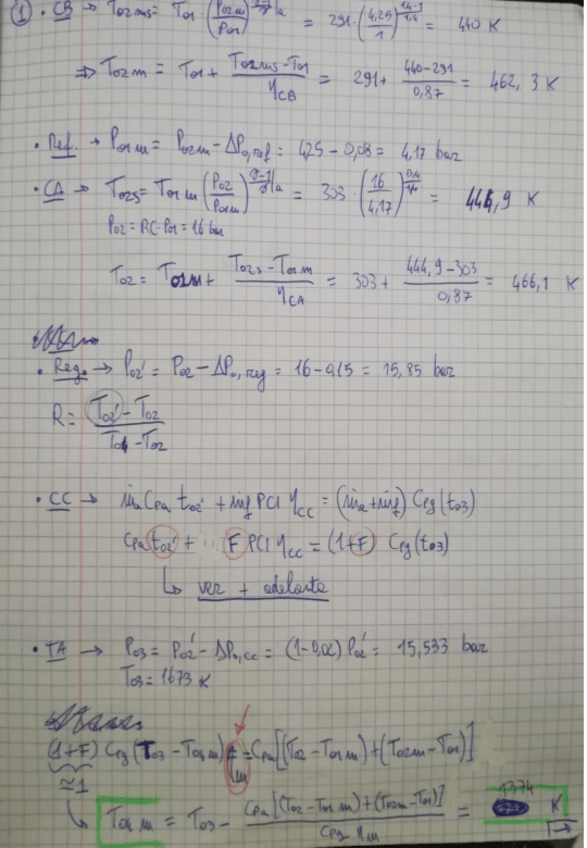 ① • CB → T02ms = T01 (P02m/P01)^(γ-1/γ)a = 291·(4,25/1)^(1,4-1/1,4) = 440 K
⇒ T02m = T01 + (T02ms - T01)/ηCB = 291 + (440-291)/0,87 = 462,3 K
• Ref. → P01m = P02m - ΔP0,ref = 4,25 - 0,08 = 4,17 bar
• CA → T02s = T01m (P02/P01m)^(γ-1/γ)a = 303·(16/4,17)^(0,4/1,4) = 444,9 K
P02 = RC·P01 = 16 bar
T02 = T01m + (T02s - T01m)/ηCA = 303 + (444,9-303)/0,87 = 466,1 K
• Reg. → P02' = P02 - ΔP0,reg = 16 - 0,15 = 15,85 bar
R = (T02' - T02)/(T04 - T02)
• CC → ṁa Cpa t02' + ṁf PCI ηcc = (ṁa + ṁf) Cpg (t03)
Cpa t02' + F PCI ηcc = (1+F) Cpg (t03)
↳ ver + adelante
• TA → P03 = P02' - ΔP0,cc = (1-0,02) P02' = 15,533 bar
T03 = 1673 K
(1+F) Cpg (T03 - T04m) ηm = Cpa [(T02 - T01m) + (T02m - T01)]
≃1
↳ T04m = T03 - Cpa [(T02 - T01m) + (T02m - T01)]/(Cpg ηm) = 1374 K
→